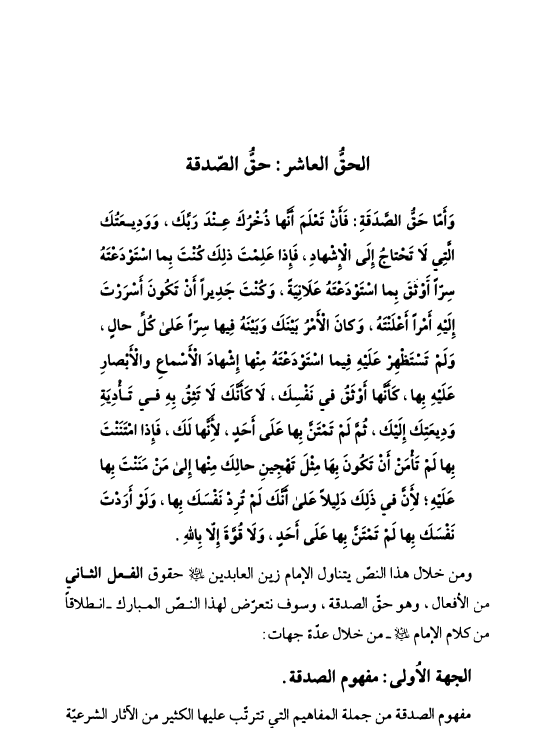 الحقُّ العاشر : حقُّ الصّدقة
وَأَمّا حَقُّ الصَّدَقَةِ: فَأَنْ تَعْلَمَ أَنَّها ذُخْرُكَ عِـنْدَ رَبِّكَ ، وَوَدِيـعَتُكَ
الَّتِي لَا تَحْتاجُ إِلَى الْإِشْهادِ ، فَإِذا عَلِمْتَ ذلِكَ كُنْتَ بِما اسْتَوْدَعْتَهُ
سِرّاً أَوْثَقَ بِما اسْتَوْدَعْتَهُ عَلَانِيَةً ، وَكُنْتَ جَدِيراً أَنْ تَكُونَ أَسْرَرْتَ
إِلَيْهِ أَمْراً أَعْلَنْتَهُ ، وَكانَ الْأَمْرُ بَيْنَكَ وَبَيْنَهُ فِيها سِرّاً عَلىٰ كُلِّ حالٍ ،
وَلَمْ تَسْتَظْهِرْ عَلَيْهِ فِيما اسْتَوْدَعْتَهُ مِنْها إِشْهادَ الْأَسْماعِ والْأَبْصارِ
عَلَيْهِ بِها ، كَأَنَّها أَوْثَقُ في نَفْسِكَ ، لَا كَأَنَّكَ لَا تَثِقُ بِهِ فـي تَـأْدِيَةِ
وَدِيعَتِكَ إِلَيْكَ ، ثُمَّ لَمْ تَمْتَنَّ بِها عَلَى أَحَدٍ ، لأَنَّها لَكَ ، فَإِذا امْتَنَنْتَ
بِها لَمْ تَأْمَنْ أَنْ تَكُونَ بِهَا مِثْلَ تَهْجِينِ حالِكَ مِنْها إِلىٰ مَنْ مَنَنْتَ بِها
عَلَيْهِ؛ لأَنَّ في ذَلِكَ دَلِيلاً عَلىٰ أَنَّكَ لَمْ تُرِدْ نَفْسَكَ بِها ، وَلَوْ أَرَدْتَ
نَفْسَكَ بِها لَمْ تَمْتَنَّ بِها عَلَى أَحَدٍ ، وَلَا قُوَّةَ إِلّا بِاللهِ .
ومن خلال هذا النصّ يتناول الإمام زين العابدين ﷺ حقوق الفـعل الثـاني
من الأفعال ، وهو حقّ الصدقة ، وسوف نتعرّض لهذا النـصّ المـبارك ـ انـطلاقاً
من كلام الإمام ﷺ ـ من خلال عدّة جهات:
الجهة الأولى : مفهوم الصدقة .
مفهوم الصدقة من جملة المفاهيم التي تترتّب عليها الكثير من الآثار الشرعيّة